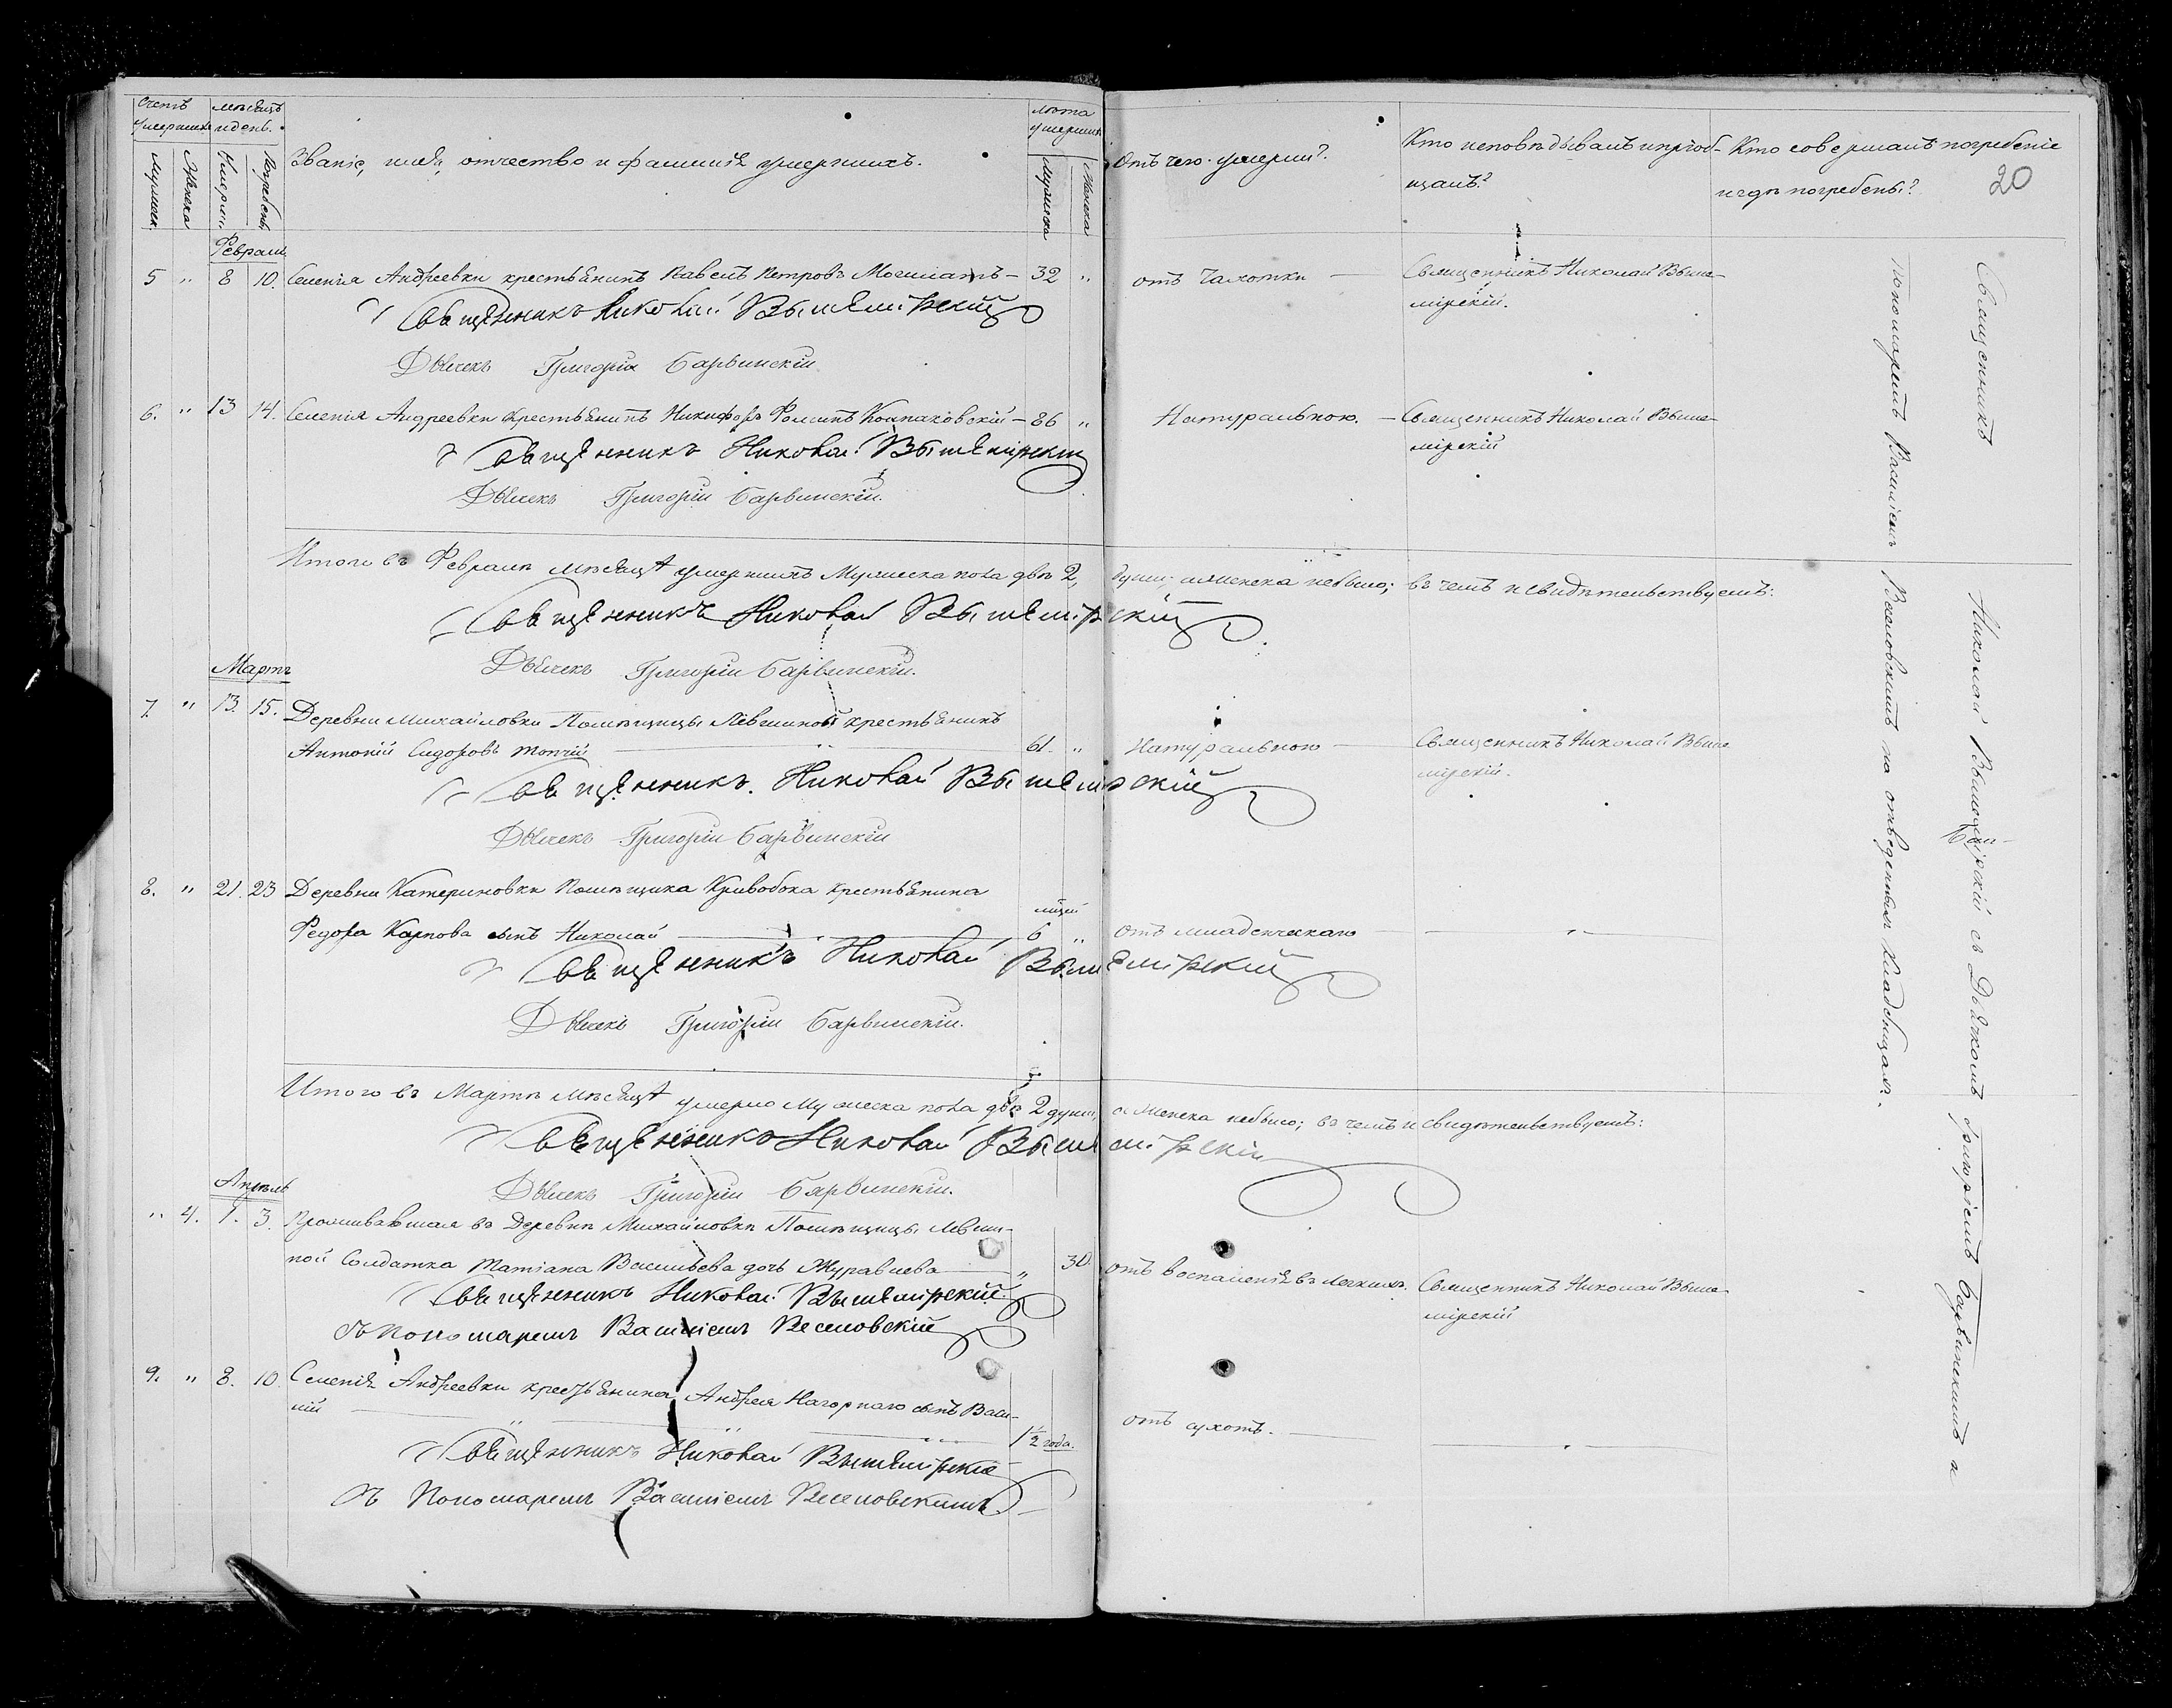 Счетъ умершихъ
мѣсяцъ и день.
Званіе, имя, отчество и фамилія умершихъ.
лѣта умершихъ
Мужеска
Женска
Умерш.
Погребенъ
Мужеска
Женска
Отъ чего умерли?
Кто исповѣдывалъ и пріоб-
щалъ?
Кто совершалъ погребеніе
и гдѣ погребены?
20
Февраль
5 " 8 10. Селенія Андреевки крестьянинъ Павелъ Петровъ Могилатъ – 32 " отъ чахотки — Священникъ Николай Выше-
мірскій.
Священникъ Николай Вышемірскій
Дьячекъ Григорій Барвинскій
6. " 13 14. Селенія Андреевки Крестьянинъ Никифоръ Фоминъ Колпаковскій – 86 " Натуральною. — Священникъ Николай Выше-
мірскій
Священникъ Николай Вышемірскій
Дьячекъ Григорій Барвинскій.
Итого въ Февралѣ мѣсяцѣ умершихъ Мужеска пола двѣ 2, души; а женска небыло; въ чемъ и свидѣтельствуемъ:
Священникъ Николай Вышемірскій
Дьячекъ Григорій Барвинскій.
Мартъ
7. " 13. 15. Деревни Михайловки Помѣщицы Левшиной крестьянинъ
Антоній Сидоровъ Топчій — 61. " Натуральною — Священникъ Николай Выше
мірскій.
Священникъ Николай Вышемірскій
Дьячекъ Григорій Барвинскій
8. " 21. 23 Деревни Катериновки Помѣщика Кривобока крестьянина
Федора Карпова сынъ Николай — 6 " отъ младенческаго —
Священникъ Николай Вышемірскій
Дьячекъ Григорій Барвинскій.
Итого въ Мартѣ мѣсяцѣ умерло Мужеска пола двѣ 2 души, а женска небыло; въ чемъ и свидѣтельствуемъ:
Священникъ Николай Вышемірскій
Дьячекъ Григорій Барвинскій.
Апрѣль
" 4. 1. 3. Проживавшая въ Деревнѣ Михайловкѣ Помѣщицы Левши-
ной Солдатка Татіана Васильева дочь Журавлева — " 30. отъ воспаленія въ легкихъ. Священникъ Николай Выше-
мірскій
Священникъ Николай Вышемірскій
Съ Пономаремъ Василіемъ Веселовскій
9. " 8. 10. Селенія Андреевки крестьянина Андрея Нагорнаго сынъ Васи-
лій — 1½ года. отъ сухотъ. —
Священникъ Николай Вышемірскій
Съ Пономаремъ Василіемъ Веселовскимъ
Священникъ Николай Вышемірскій съ Дьячкомъ Григоріемъ Барвинскимъ и
Пономаремъ Василіемъ Веселовскимъ на отведенныхъ Кладбищахъ.